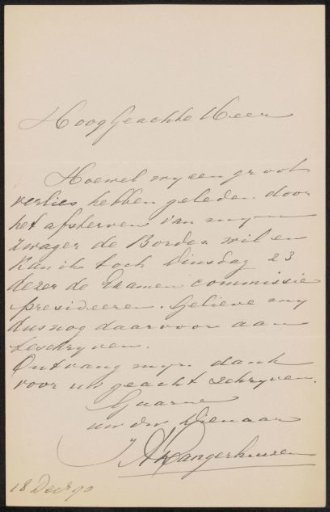 Hoog Geachte Heer
Hoewel wy een groot
verlies hebben geleden door
het afsterven van myn
zwager de Bordes wil en
kan ik toch Dinsdag 23
dezer de Examen commissie
presideeren. Gelieve my
dus nog daarvoor aan
te schryven.
Ontvang myn dank
voor uw geacht schryven.
Gaarne
uw dw dienaar
18 Dec 90